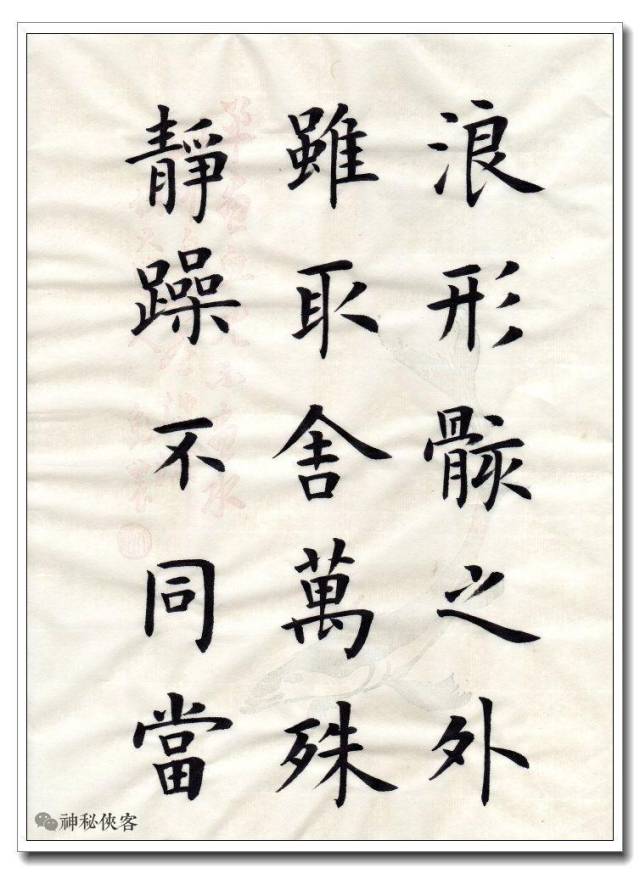 浪形骸之外
雖取舍萬殊
靜躁不同當
神秘侠客